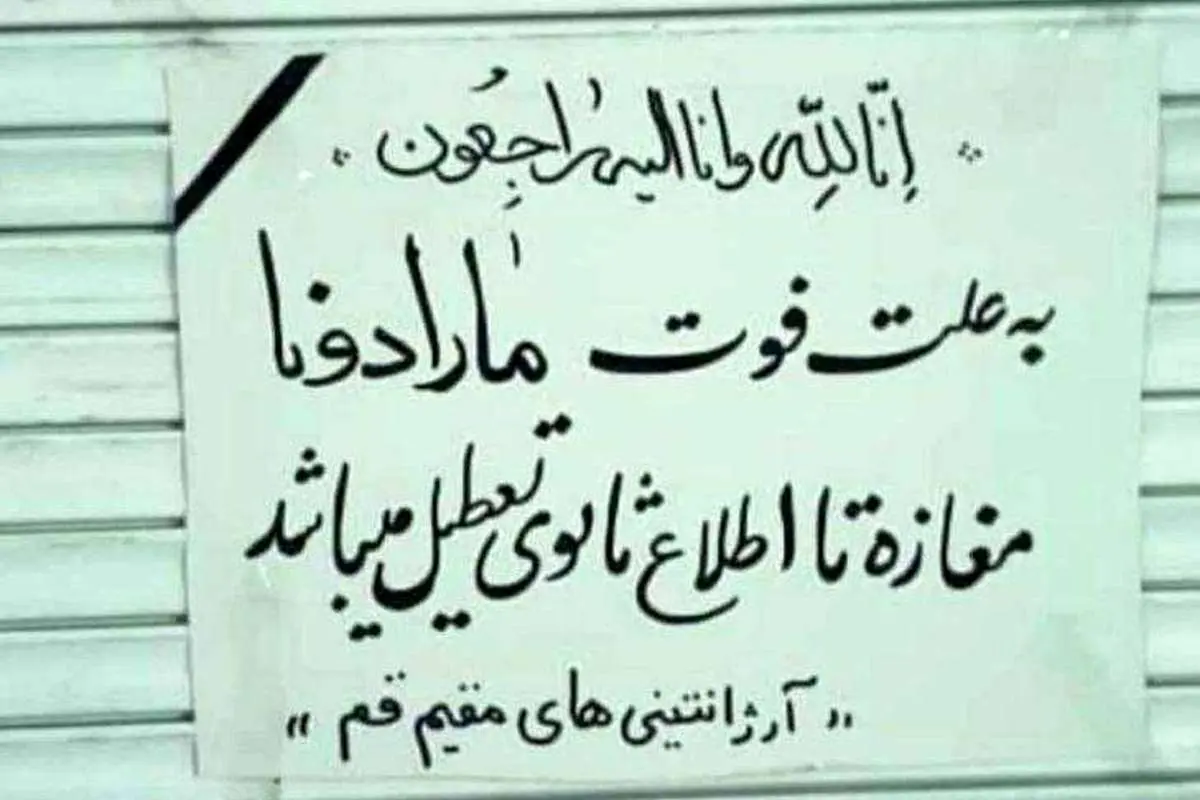 إنّا لِلّه وانا الیه راجِعُون
به علت فوت مارادونا
مغازه تا اطلاع ثانوی تعطیل میباشد
« آرژانتینی های مقیم قم »